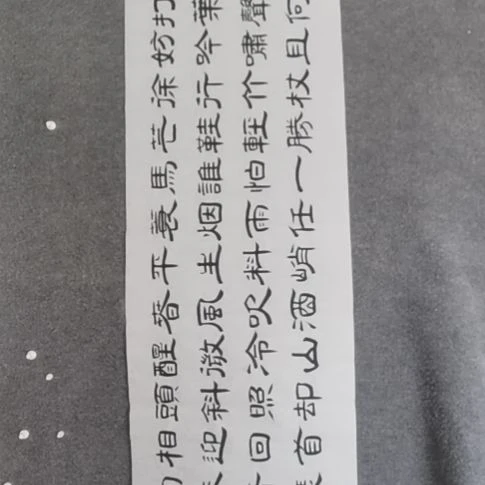 打葉聲何
妨吟嘯且
徐行竹杖
芒鞋輕勝
馬誰怕一
蓑烟雨任
平生料峭
春風吹酒
醒微冷山
頭斜照却
相迎回首